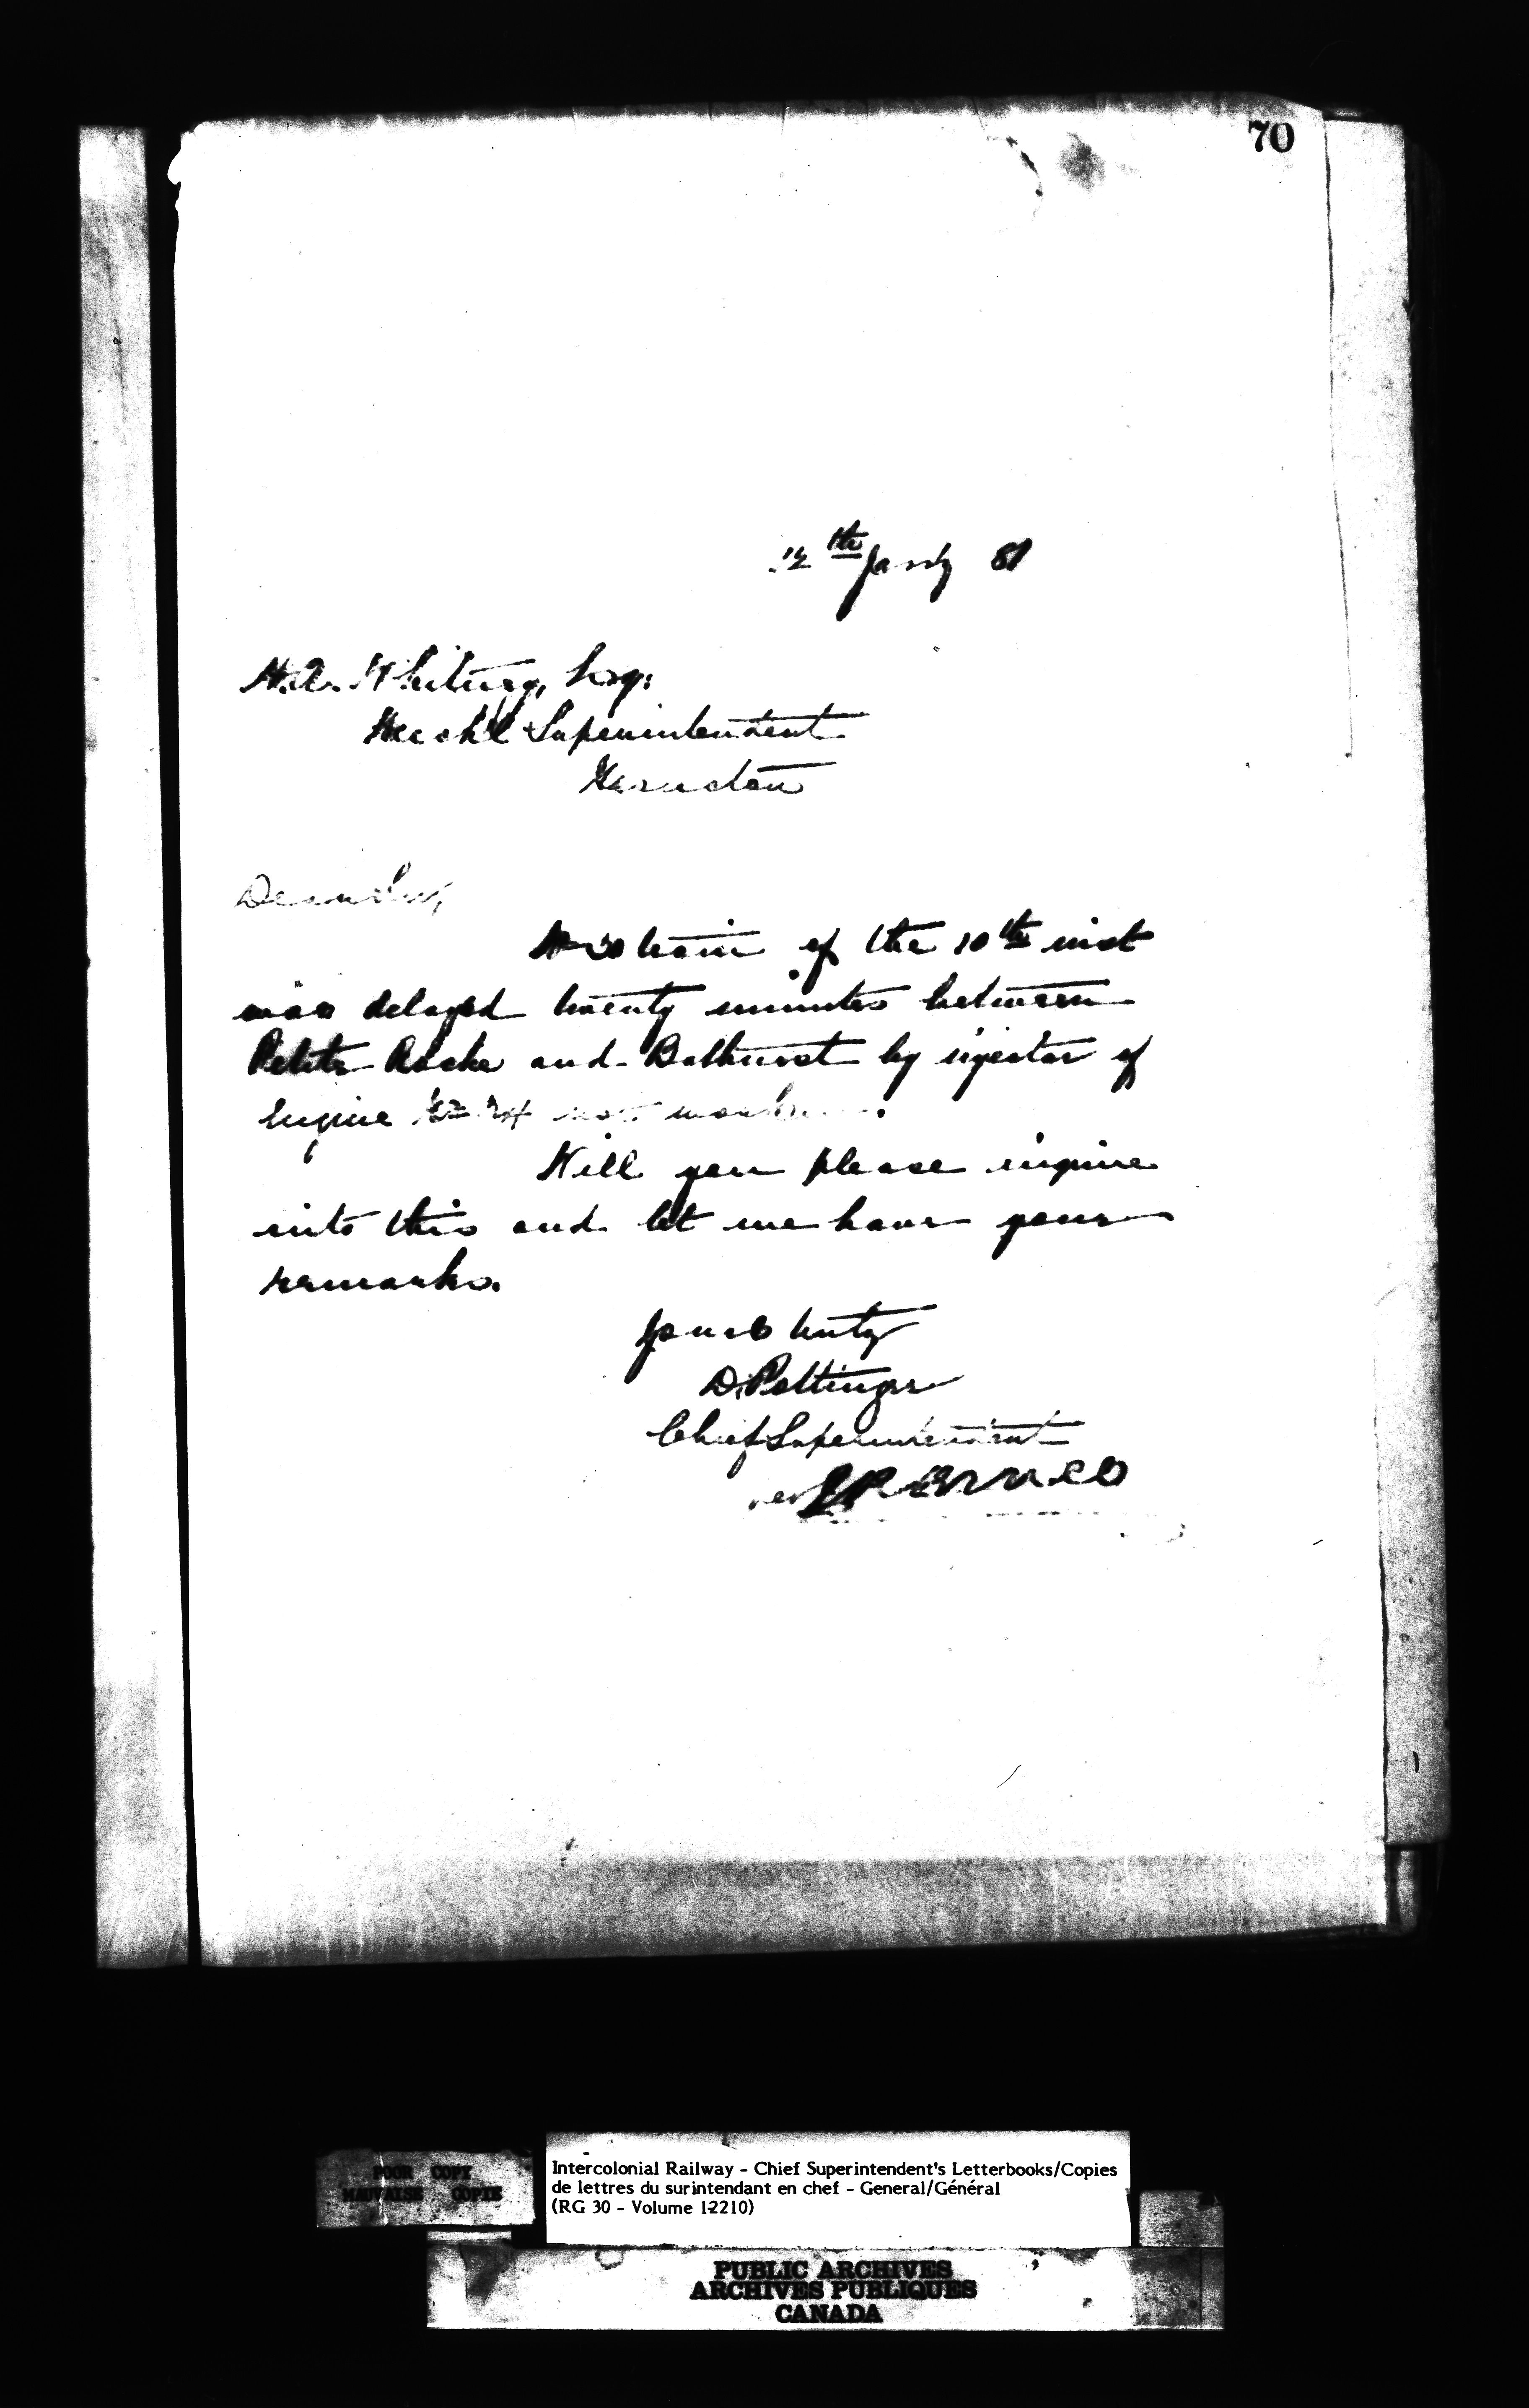 70
12th Jan'y 81
H. A. Whitney, Esq:
Mech'l Superintendent
Moncton
Dear Sir,
train of the 10th inst
was delayed twenty minutes between
Petite Roche and Bathurst by injector of
Engine No 24 not working.
Will you please inquire
into this and let me have your
remarks.
Yours truly
D. Pottinger
Chief Superintendent
per
POOR COPY
MAUVAISE COPIE
Intercolonial Railway - Chief Superintendent's Letterbooks/Copies
de lettres du surintendant en chef - General/Général
(RG 30 - Volume 12210)
PUBLIC ARCHIVES
ARCHIVES PUBLIQUES
CANADA